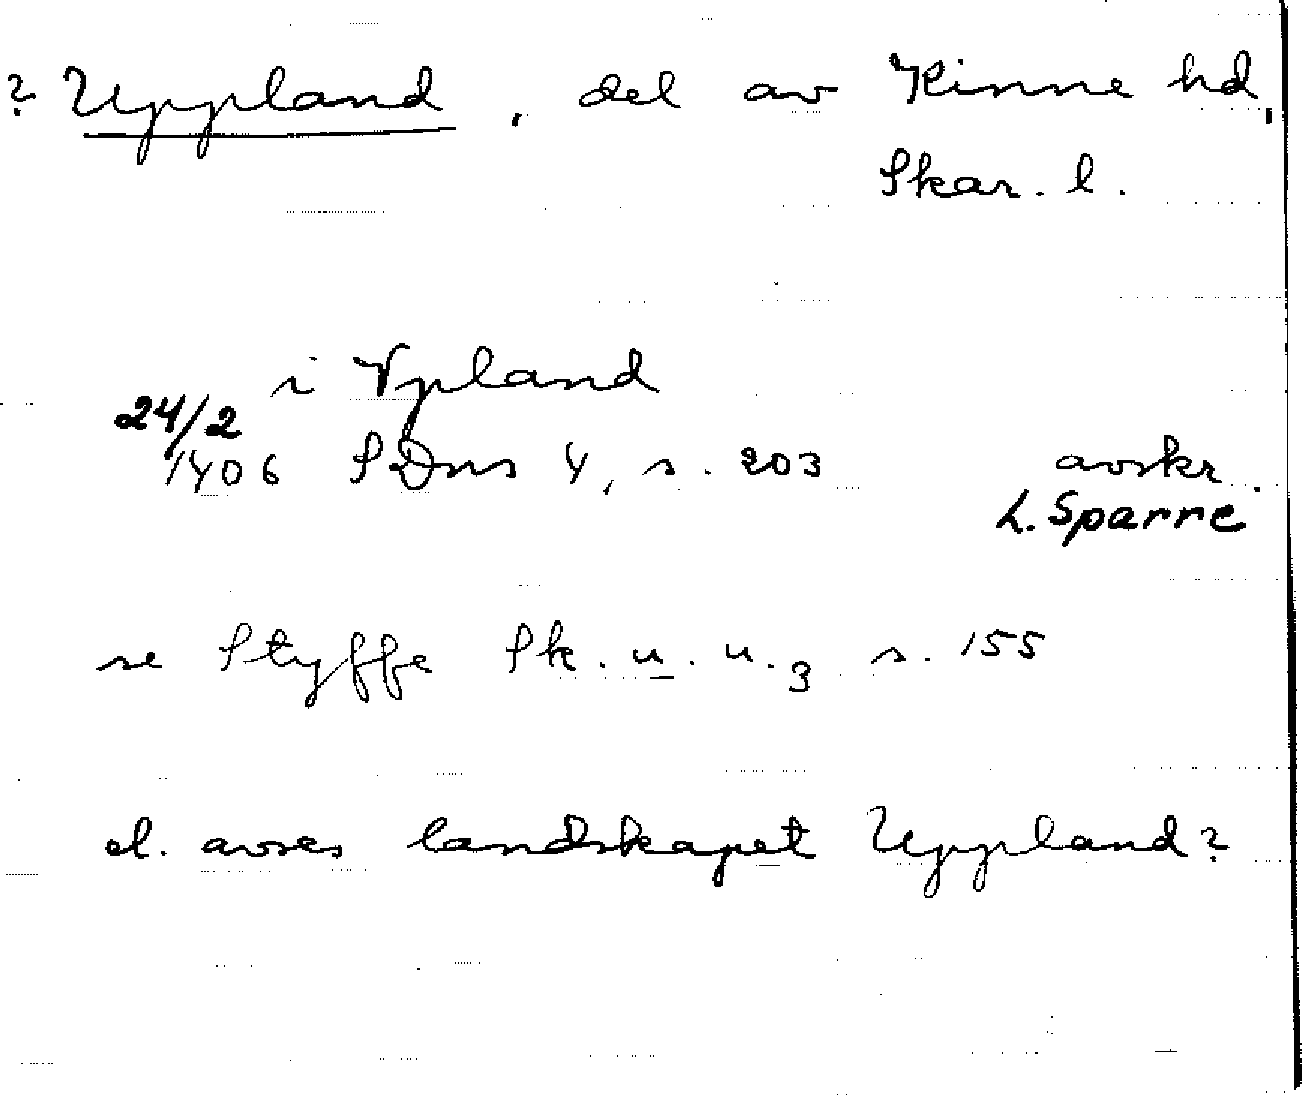 ? Uppland, del av Kinne hd,
Skar. l.
i Vpland
24/2
1406 SDns 4, s. 203 avskr.
L. Sparre
se Styffe Sk. u. u. 3 s. 155
el. avses landskapet Uppland?